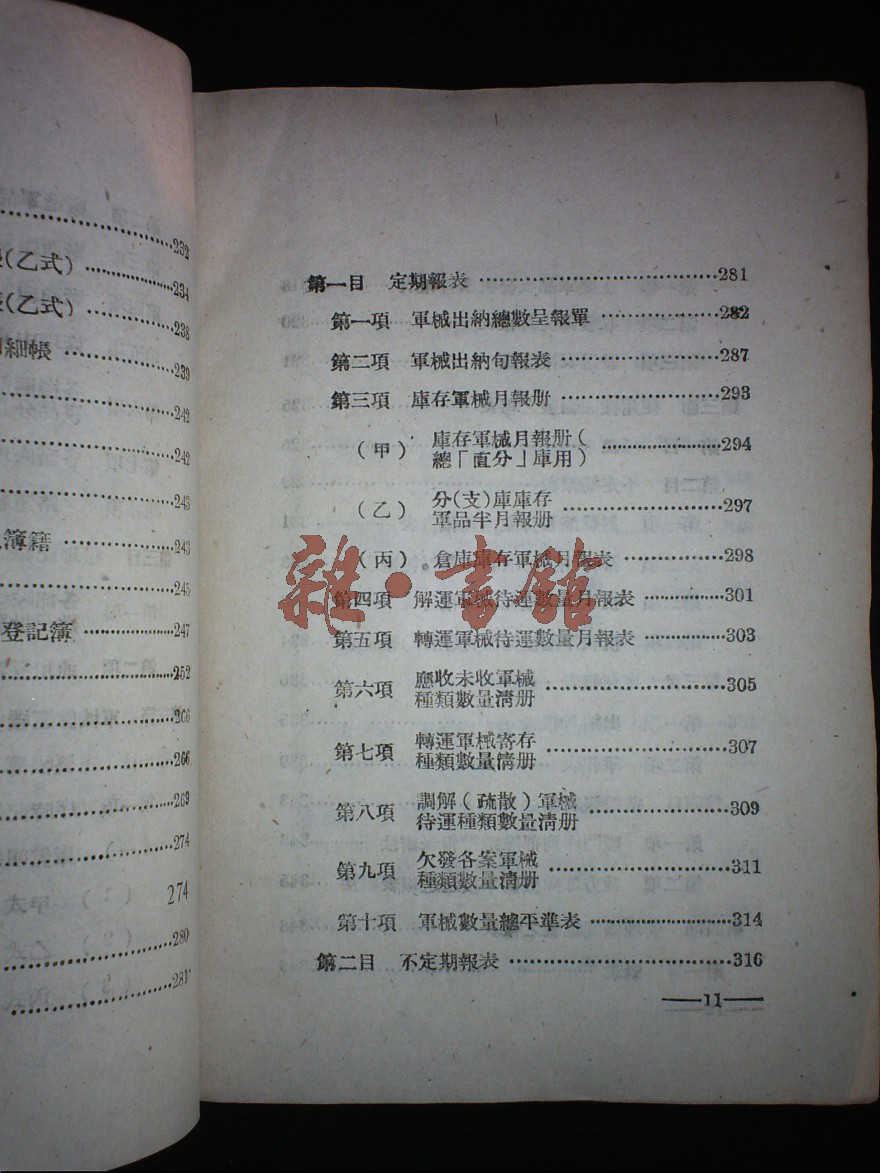 232
(乙式)……234
(乙式)……238
細帳……239
242
242
243
簿籍……243
245
登記簿……247
252
266
266
269
274
274
280
281
第一目 定期報表……281
第一項 軍械出納總數呈報單……282
第二項 軍械出納旬報表……287
第三項 庫存軍械月報册……293
(甲) 庫存軍械月報册(
總「直分」庫用)……294
(乙) 分(支)庫庫存
軍品半月報册……297
(丙) 倉庫庫存軍械月報表……298
第四項 解運軍械待運數量月報表……301
第五項 轉運軍械待運數量月報表……303
第六項 應收未收軍械
種類數量淸册……305
第七項 轉運軍械寄存
種類數量淸册……307
第八項 調解(疏散)軍械
待運種類數量淸册……309
第九項 欠發各案軍械
種類數量淸册……311
第十項 軍械數量總平準表……314
第二目 不定期報表……316
—11—
雜·書館